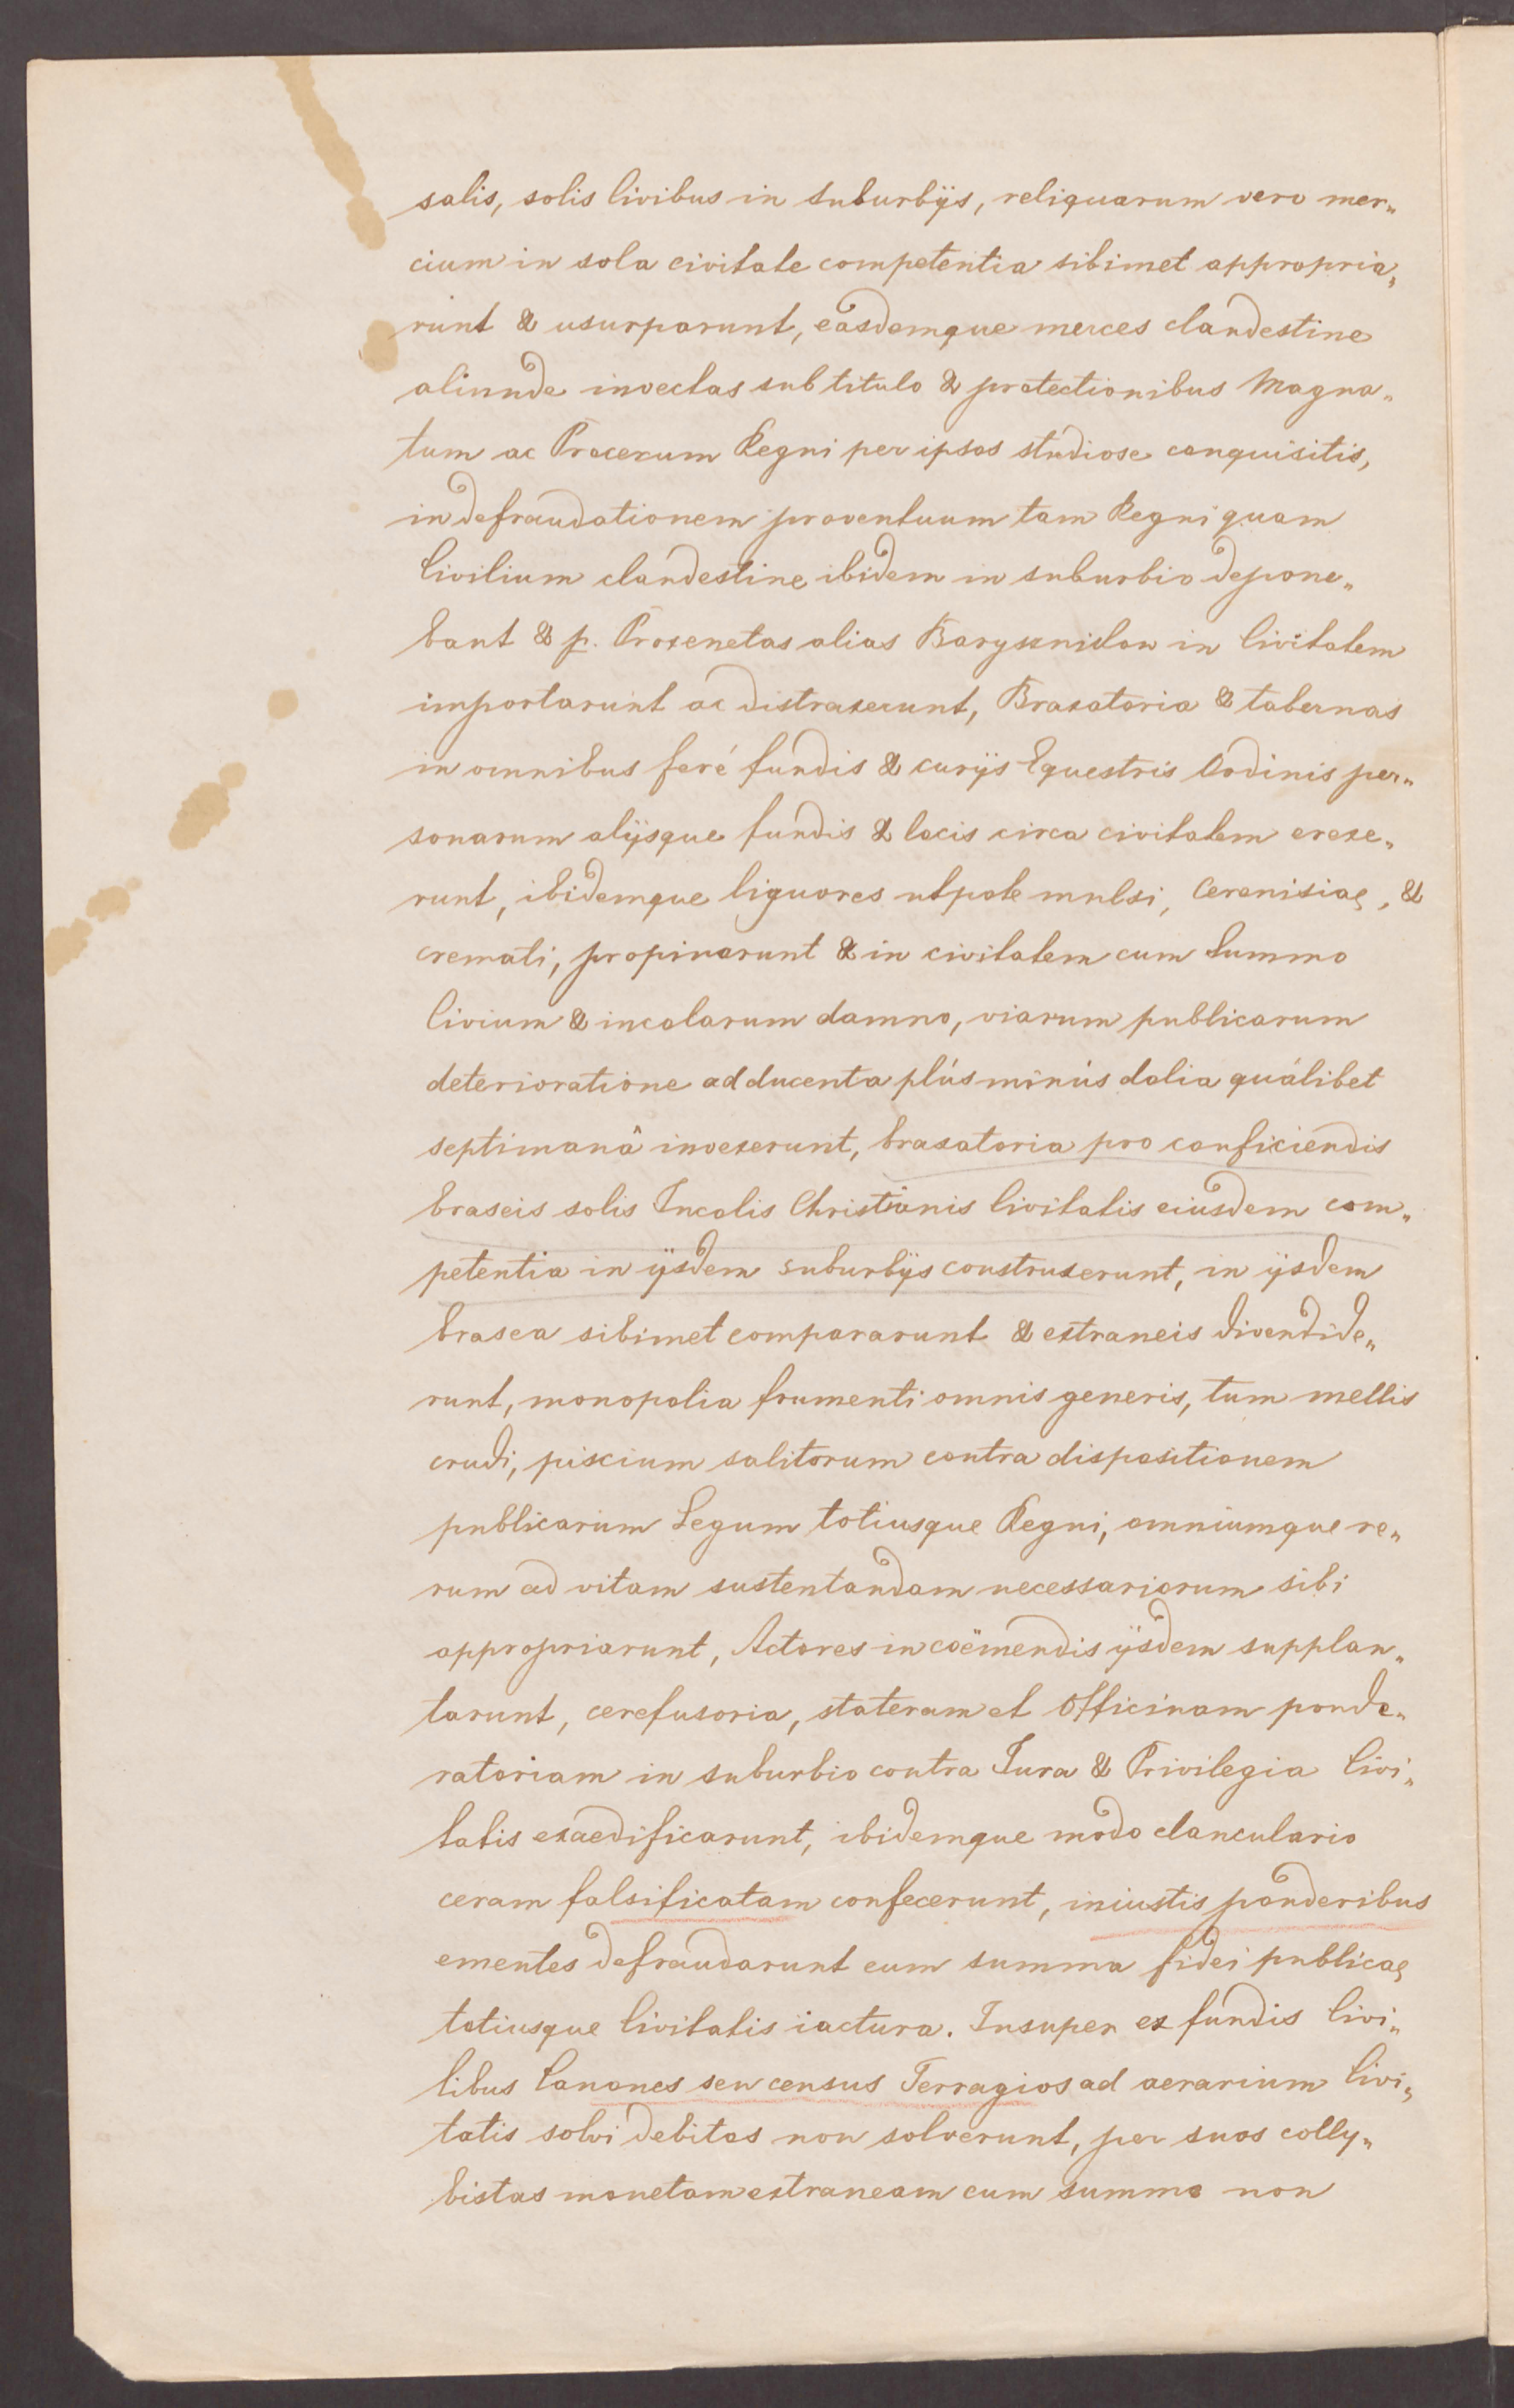 salis, solis Civibus in Suburbÿs, reliquarum vero mer„
cium in sola civitate competentia sibimet appropria„
runt & usurparunt, easdemque merces clandestine
aliunde invectas sub titulo & protectionibus Magna„
tum ac Procerum Regni per ipsos studiose conquisitis,
in defraudationem proventuum tam Regni quam
Civilium clandestine ibidem in suburbio depone„
bant & p. Proxenetas alias in Civitatem
importarunt ac distraxerunt, Braxatoria & tabernas
in omnibus feré fundis & curÿs Equestris Ordinis per„
sonarum alÿsque fundis & locis circa civitatem erexe„
runt, ibidemque liquores utpote mulsi, Cerevisiae, &
cremati, propinarunt & in civitatem cum Summo
Civium & incolarum damno, viarum publicarum
deterioratione ad ducenta plús minús dolia quálibet
septimanâ invexerunt, braxatoria pro conficiendis
braseis solis Incolis Christianis Civitatis eiusdem com„
petentia in ÿsdem suburbÿs construxerunt, in ÿsdem
brasea sibimet compararunt & extraneis divendide„
runt, monopolia frumenti omnis generis, tum mellis
crudi, piscium salitorum contra dispositionem
publicarum Legum totiusque Regni, omniumque re„
rum ad vitam sustentandam necessariorum sibi
appropriarunt, Actores in coëmendis ÿsdem supplan„
tarunt, cerefusoria, stateram et Officinam ponde„
ratoriam in suburbio contra Iura & Privilegia Civi„
tatis exaedificarunt, ibidemque modo clanculario
ceram falsificatam confecerunt, iniustis ponderibus
ementes defraudarunt cum summa fidei publicae
totiusque Civitatis iactura. Insuper ex fundis Civi„
libus Canones seu census Terragios ad aerarium Civi„
tatis solvi debitos non solverunt, per suos colly„
bistas monetam extraneam cum summo non